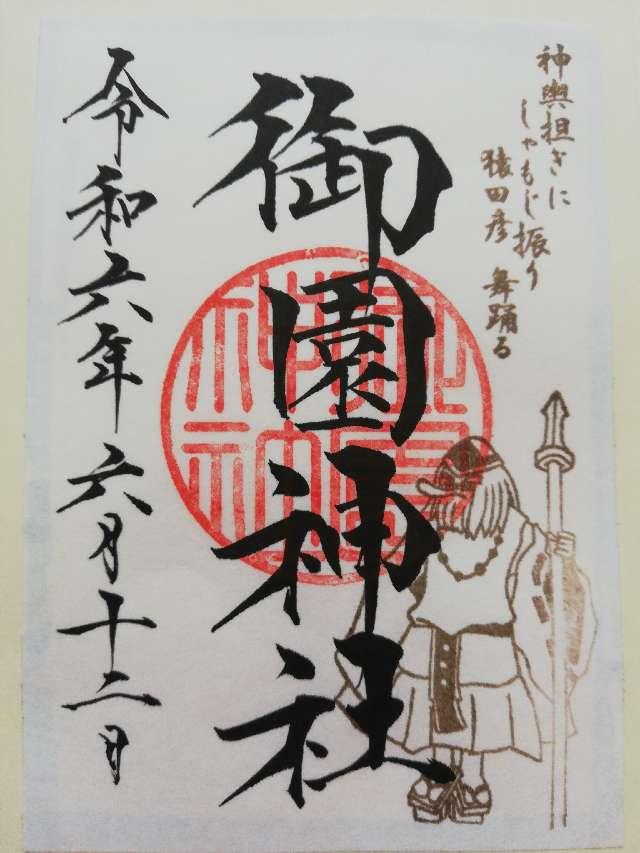 神輿担ぎに
しゃもじ振り
猿田彦 舞踊る
御園神社
令和六年六月十二日